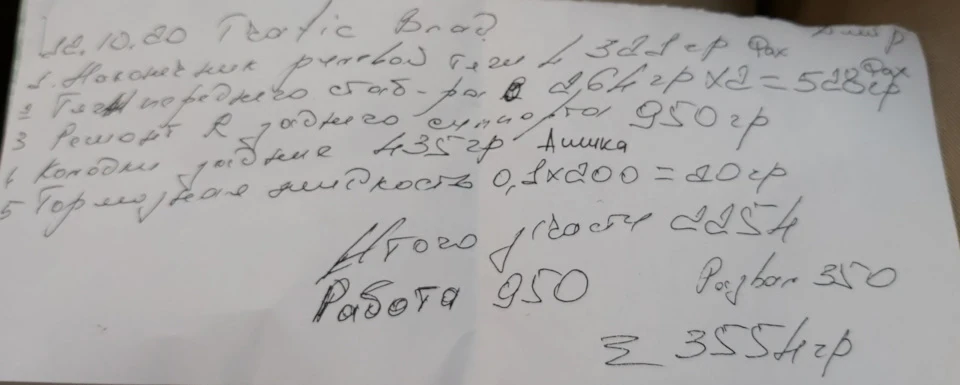 12.10.20 Trafic Влад
1. Наконечник рулевой тяги L 321гр Фах
2 Тяги переднего стаб-ра 264гр x2 = 528гр Фах
3 Ремонт R заднего суппорта 950гр
4 Колодки задние 435гр Алика
5 Тормозная жидкость 0,1x200 = 20гр
Итого запчасти 2254
Работа 950 Развал 350
Σ 3554гр